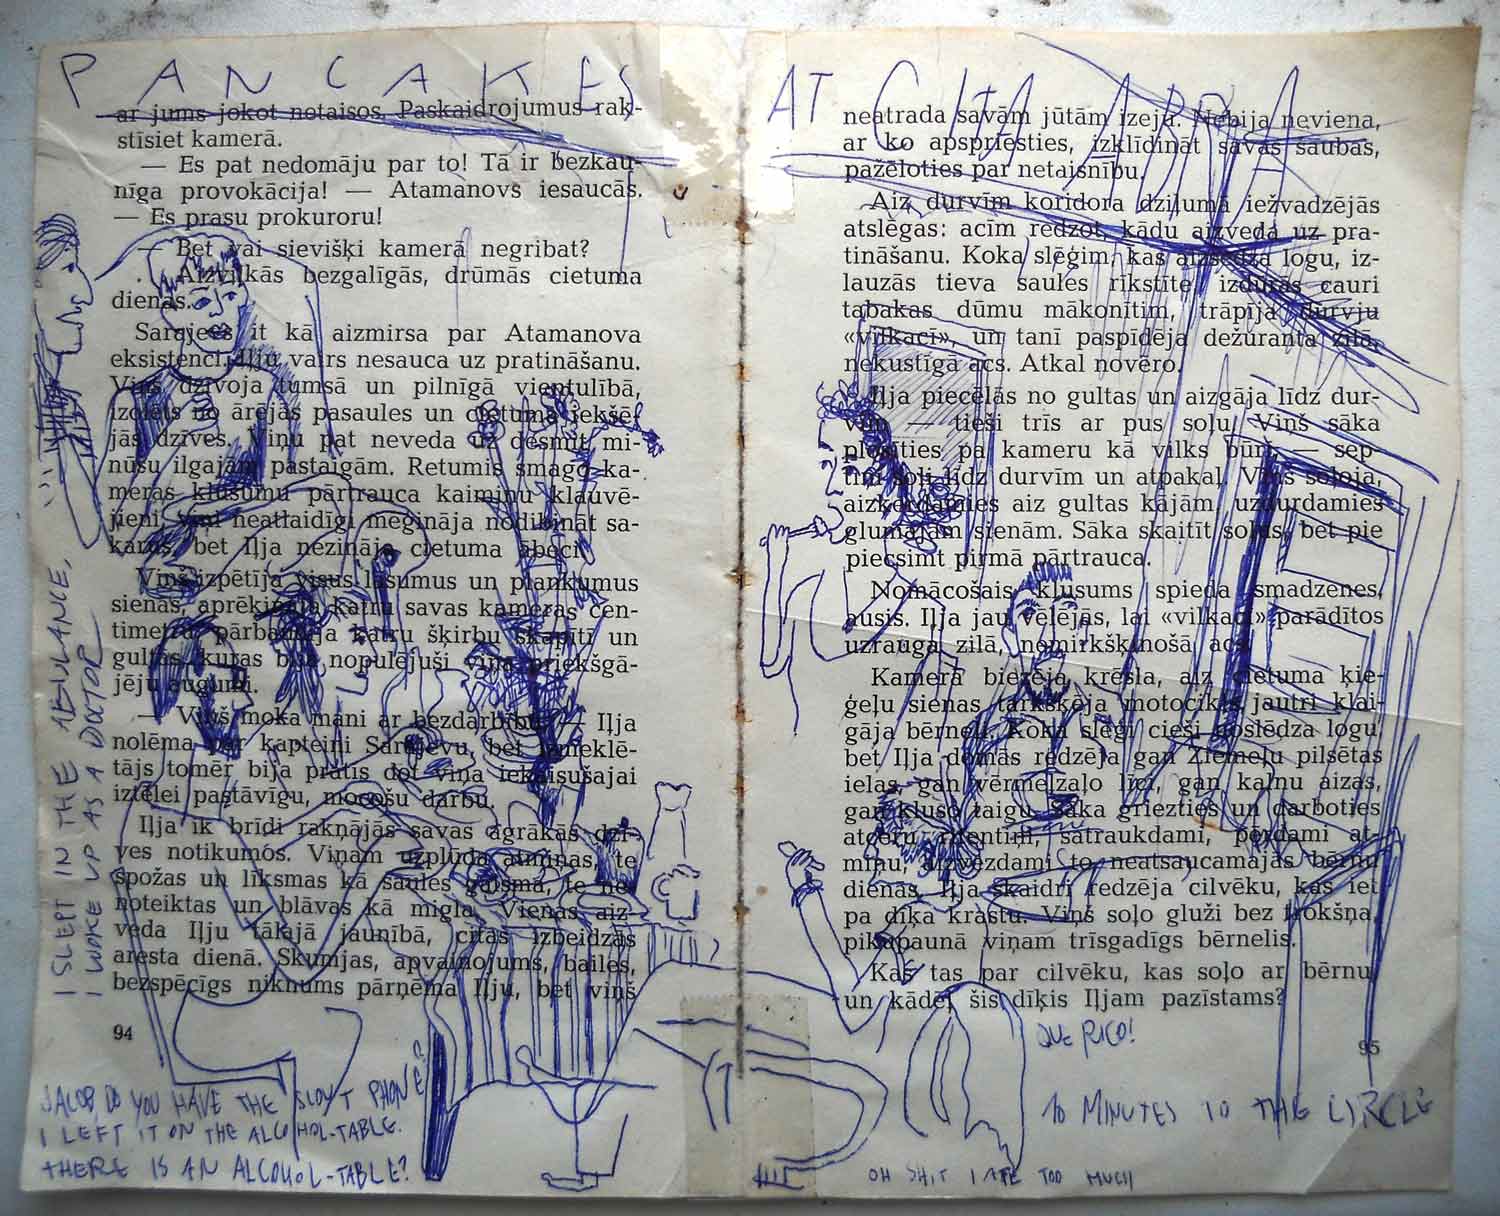 PANCAKES AT CITA ABRA
ar jums jokot notaisos. Paskaidrojumus rak-
stīsiet kamerā.
— Es pat nedomāju par to! Tā ir bezkau-
nīga provokācija! — Atamanovs iesaucās.
— Es prasu prokuroru!
— Bet vai sievišķi kamerā negribat?
. . . Aizvilkās bezgalīgās, drūmās cietuma
dienas.
Sarajevs it kā aizmirsa par Atamanova
eksistenci. Iļju vairs nesauca uz pratināšanu.
Viņš dzīvoja tumsā un pilnīgā vientulībā,
izolēts no ārējās pasaules un cietuma iekšē-
jās dzīves. Viņu pat neveda uz desmit mi-
nūšu ilgajām pastaigām. Retumis smago ka-
meras klusumu pārtrauca kaimiņu klauvē-
jieni, viņi neatlaidīgi mēģināja nodibināt sa-
karus, bet Iļja nezināja cietuma ābeci.
Viņš izpētīja visus lāsumus un plankumus
sienās, aprēķināja katru savas kameras cen-
timetru, pārbaudīja katru šķirbu skapītī un
gultā, kuras bija nopulējuši viņa priekšgā-
jēju augumi.
— Viņš moka mani ar bezdarbību, — Iļja
nolēma par kapteini Sarajevu, bet izmeklē-
tājs tomēr bija pratis dot viņa iekaisušajai
iztēlei pastāvīgu, mocošu darbu.
Iļja ik brīdi rakņājās savas agrākās dzī-
ves notikumos. Viņam uzplūda atmiņas, te
spožas un līksmas kā saules gaisma, te ne-
noteiktas un blāvas kā migla. Vienas aiz-
veda Iļju tālajā jaunībā, citas izbeidzās
aresta dienā. Skumjas, apvainojums, bailes,
bezspēcīgs niknums pārņēma Iļju, bet viņš
94
I SLEPT IN THE ABULANCE,
I WOKE UP AS A DOCTOR
JACOB, DO YOU HAVE THE PHONE?
I LEFT IT ON THE ALCOHOL-TABLE.
THERE IS AN ALCOHOL-TABLE?
neatrada savām jūtām izeju. Nebija neviena,
ar ko apspriesties, izklīdināt savas šaubas,
pažēloties par netaisnību.
Aiz durvīm koridora dziļumā iežvadzējās
atslēgas: acīm redzot, kādu aizveda uz pra-
tināšanu. Koka slēģim, kas aizsedza logu, iz-
lauzās tieva saules rīkstīte, izdūrās cauri
tabakas dūmu mākonītim, trāpīja durvju
«vilkacī», un tanī paspīdēja dežuranta zilā,
nekustīgā acs. Atkal novēro.
Iļja piecēlās no gultas un aizgāja līdz dur-
vīm — tieši trīs ar pus soļu. Viņš sāka
plosīties pa kameru kā vilks būrī, — sep-
tiņi soļi līdz durvīm un atpakaļ. Viņš soļoja,
aizķerdamies aiz gultas kājām, uzdurdamies
glumajām sienām. Sāka skaitīt soļus, bet pie
piecsimt pirmā pārtrauca.
Nomācošais klusums spieda smadzenes,
ausis. Iļja jau vēlējās, lai «vilkacī» parādītos
uzrauga zilā, nemirkšķinošā acs.
Kamerā biezēja krēsla, aiz cietuma ķie-
ģeļu sienas tarkšķēja motocikls, jautri klai-
gāja bērneļi. Koka slēģi cieši noslēdza logu,
bet Iļja domās redzēja gan Ziemeļu pilsētas
ielas, gan vērmeļzaļo līci, gan kalnu aizas,
gan kluso taigu. Sāka griezties un darboties
atceru ritentiņi, satraukdami, pērdami at-
miņu, aizvezdami to neatsaucamajās bērnu
dienās. Iļja skaidri redzēja cilvēku, kas iet
pa dīķa krastu. Viņš soļo gluži bez trokšņa,
pikupaunā viņam trīsgadīgs bērnelis.
Kas tas par cilvēku, kas soļo ar bērnu
un kādēļ šis dīķis Iļjam pazīstams?
95
QUE RICO!
10 MINUTES TO THE CIRCLE
OH SHIT I ATE TOO MUCH